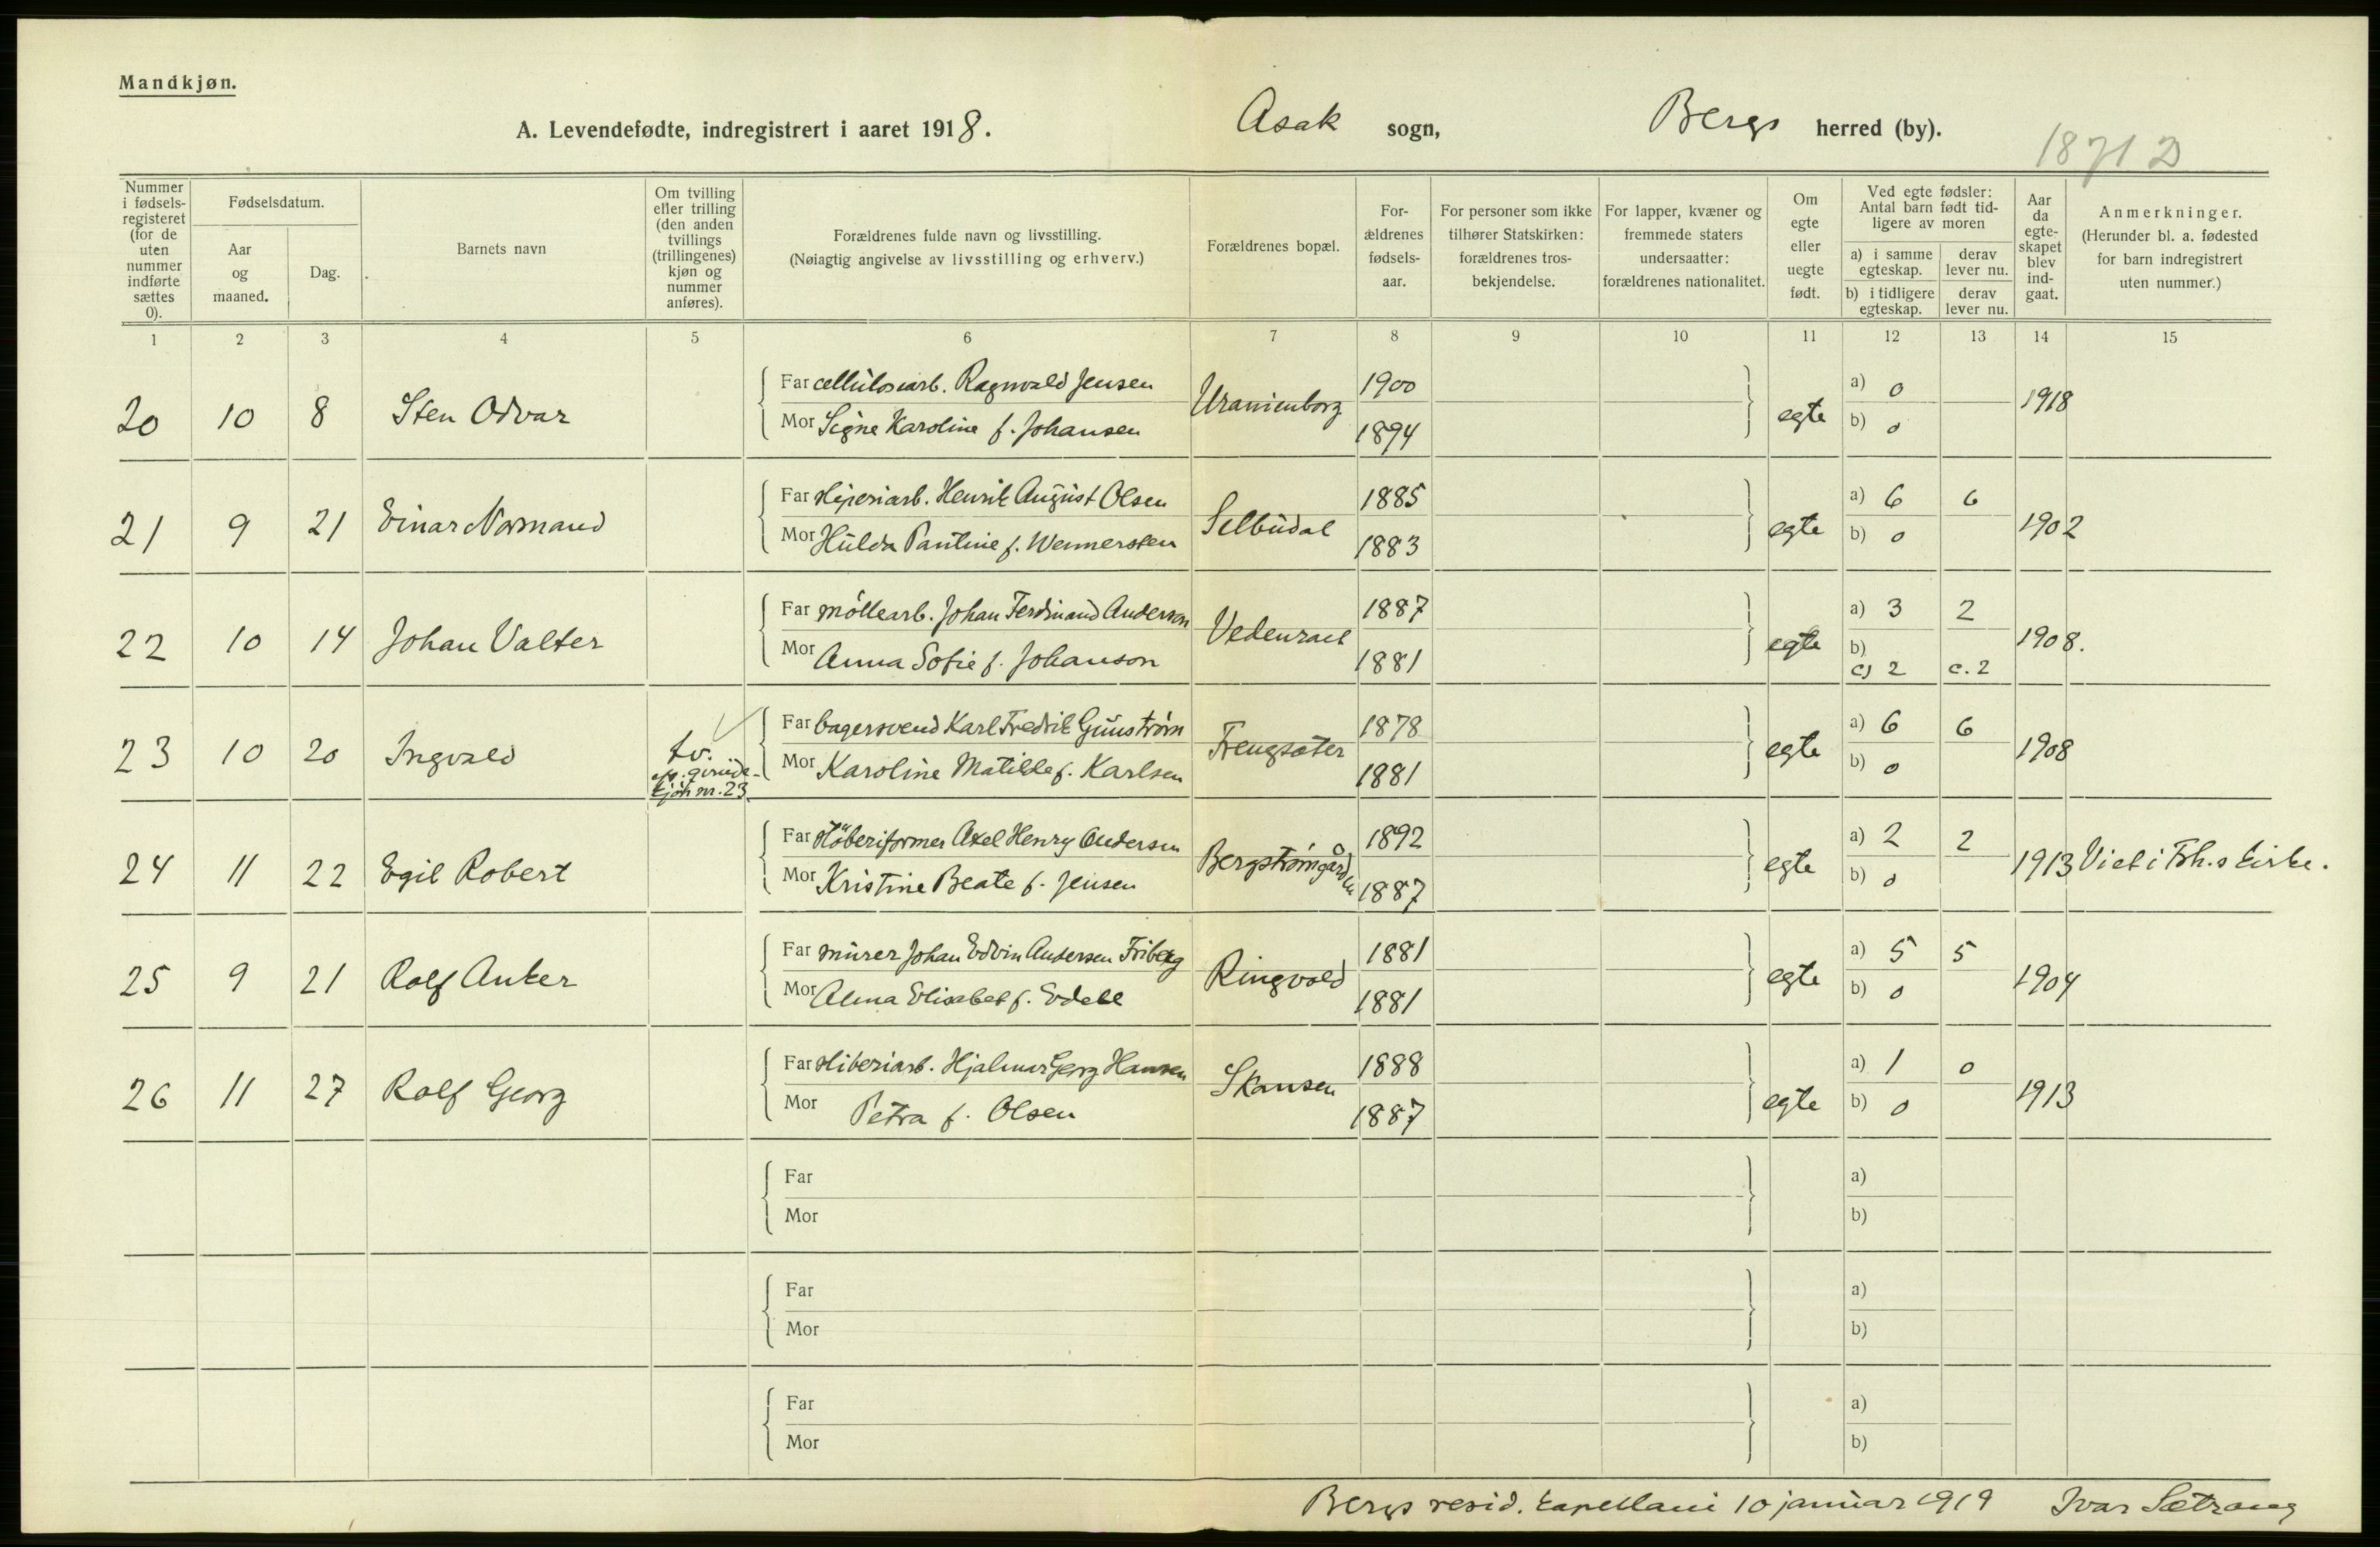 Mandkjøn.
A. Levendefødte, indregistrert i aaret 1918. Asak sogn, Bergs herred (by).
1871 D
Nummer i fødsels-registeret (for de uten nummer indførte sættes 0).
Fødselsdatum.
Aar og maaned.
Dag.
Barnets navn
Om tvilling eller trilling (den anden tvillings (trillingenes) kjøn og nummer anføres).
Forældrenes fulde navn og livsstilling.
(Nøiagtig angivelse av livsstilling og erhverv.)
Forældrenes bopæl.
For-ældrenes fødsels-aar.
For personer som ikke tilhører Statskirken: forældrenes tros-bekjendelse.
For lapper, kvæner og fremmede staters undersaatter: forældrenes nationalitet.
Om egte eller uegte født.
Ved egte fødsler: Antal barn født tid-ligere av moren
a) i samme egteskap.
derav lever nu.
b) i tidligere egteskap.
derav lever nu.
Aar da egte-skapet blev ind-gaat.
Anmerkninger.
(Herunder bl. a. fødested for barn indregistrert uten nummer.)
1 2 3 4 5 6 7 8 9 10 11 12 13 14 15
20 10 8 Sten Odvar
Far cellulosearb. Ragnvald Jensen 1900 a) 0
Uranienborg egte 1918
Mor Signe Karoline f. Johansen 1894 b) 0
21 9 21 Einar Normand
Far Henrik August Olsen 1885 a) 6 6
Selbudal egte 1902
Mor Hulda Pauline f. Wennersten 1883 b) 0
22 10 14 Johan Valter
Far møllearb. Johan Ferdinand Anderson 1887 a) 3 2
egte 1908.
Mor Anna Sofie f. Johanson 1881 b)
c) 2 c. 2
23 10 20 Ingvald tv.
kjøn nr. 23
Far bagersvend Karl Fredrik Gunstrøm 1878 a) 6 6
egte 1908
Mor Karoline Matilde f. Karlsen 1881 b) 0
24 11 22 Egil Robert
Far Axel Henry Andersen 1892 a) 2 2
egte 1913 Viet i Frh.s kirke.
Mor Kristine Beate f. Jensen 1887 b) 0
25 9 21 Rolf Anker
Far murer Johan Edvin Andersen Friberg 1881 a) 5 5
Ringvold egte 1904
Mor Alma Elisabet f. 1881 b) 0
26 11 27 Rolf Georg
Far Hjalmar Georg Hansen 1888 a) 1 0
Skansen egte 1913
Mor Petra f. Olsen 1887 b) 0
Far a)
Mor b)
Far a)
Mor b)
Far a)
Mor b)
Bergs resid. kapellani 10 januar 1919 Ivar Sætrang